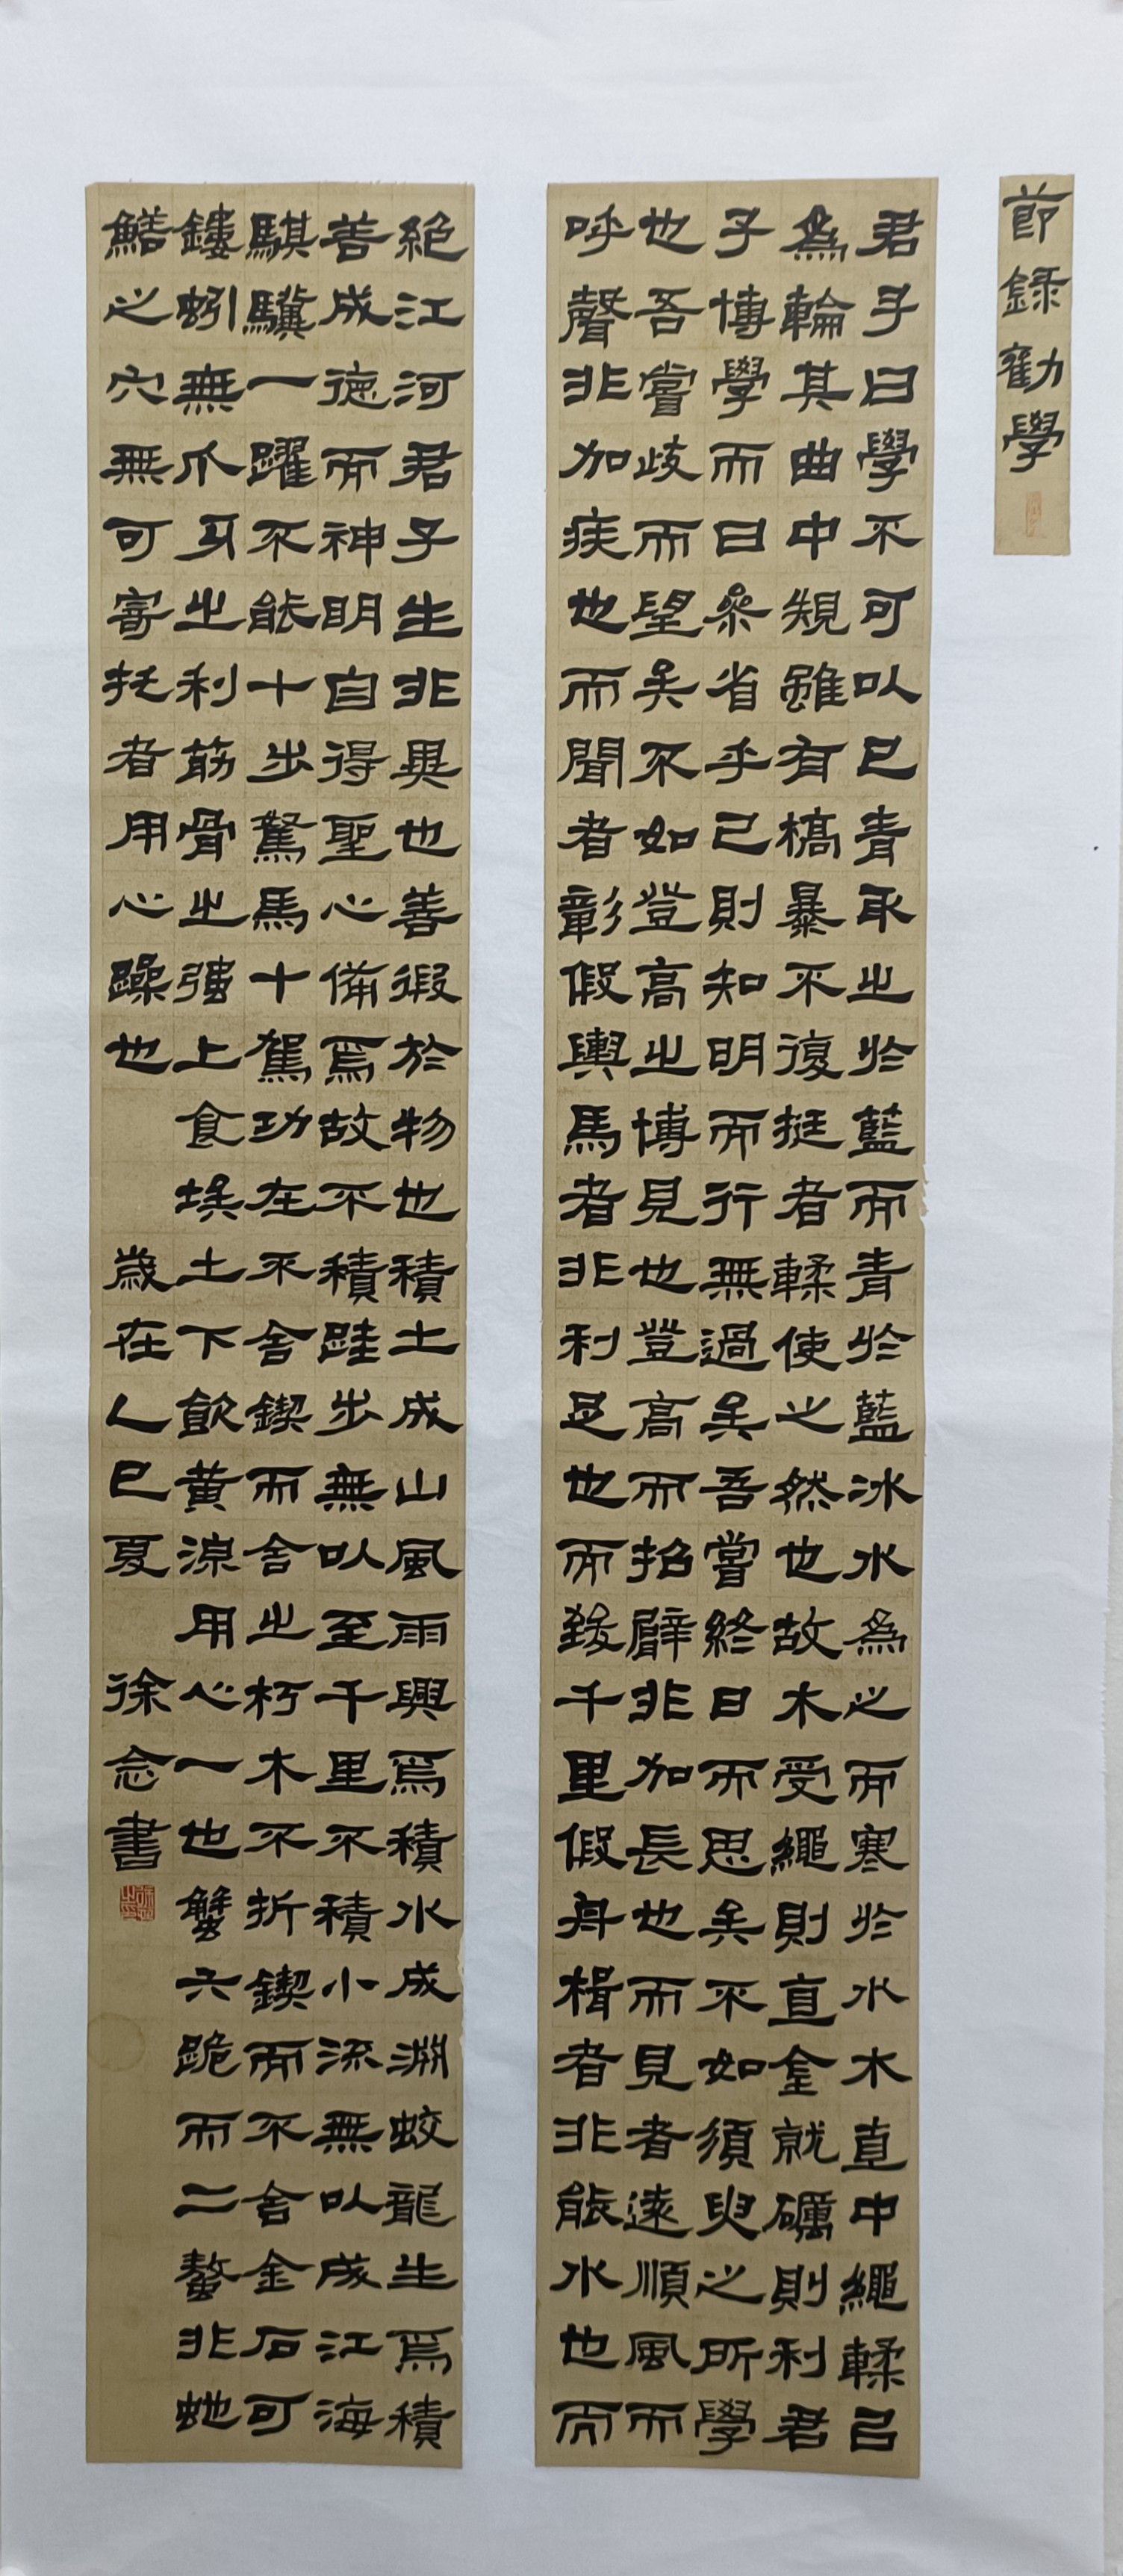 節錄勸學
君子曰學不可以已青取之於藍而青於藍冰水為之而寒於水木直中繩輮㠯
為輪其曲中規雖有槁暴不復挺者輮使之然也故木受繩則直金就礪則利君
子博學而日參省乎己則知明而行無過矣吾嘗終日而思矣不如須臾之所學
也吾嘗跂而望矣不如登高之博見也登高而招臂非加長也而見者遠順風而
呼聲非加疾也而聞者彰假輿馬者非利足也而致千里假舟楫者非能水也而
絕江河君子生非異也善假於物也積土成山風雨興焉積水成淵蛟龍生焉積
善成德而神明自得聖心備焉故不積跬步無以至千里不積小流無以成江海
騏驥一躍不能十步駑馬十駕功在不舍鍥而舍之朽木不折鍥而不舍金石可
鏤蚓無爪牙之利筋骨之強上食埃土下飲黃泉用心一也蟹六跪而二螯非虵
鱔之穴無可寄托者用心躁也 歲在乙巳夏 徐念書